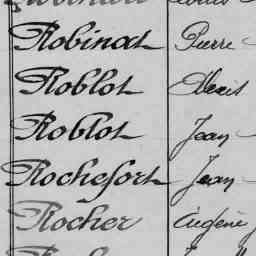 Robinat Pierre
Roblot Alexis
Roblot Jean
Rochefort Jean
Rocher Eugène